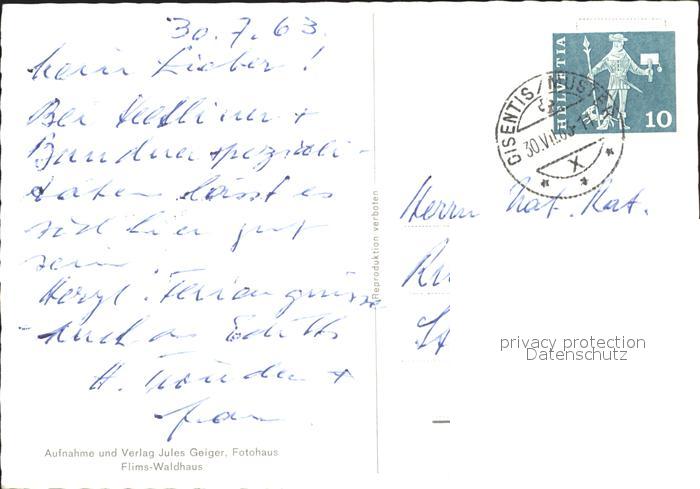 30.7.63.
Mein Lieber!
Bei Veltliner +
Bündnerspeziali-
täten lässt es
sich hier gut
sein.
Herzl. Feriengrüsse
auch an Edith
H.
+
Frau
Aufnahme und Verlag Jules Geiger, Fotohaus
Flims-Waldhaus
Reproduktion verboten
HELVETIA
10
DISENTIS/MUSTÉR
30.VII.63
X
Herrn Nat. Rat.
privacy protection
Datenschutz